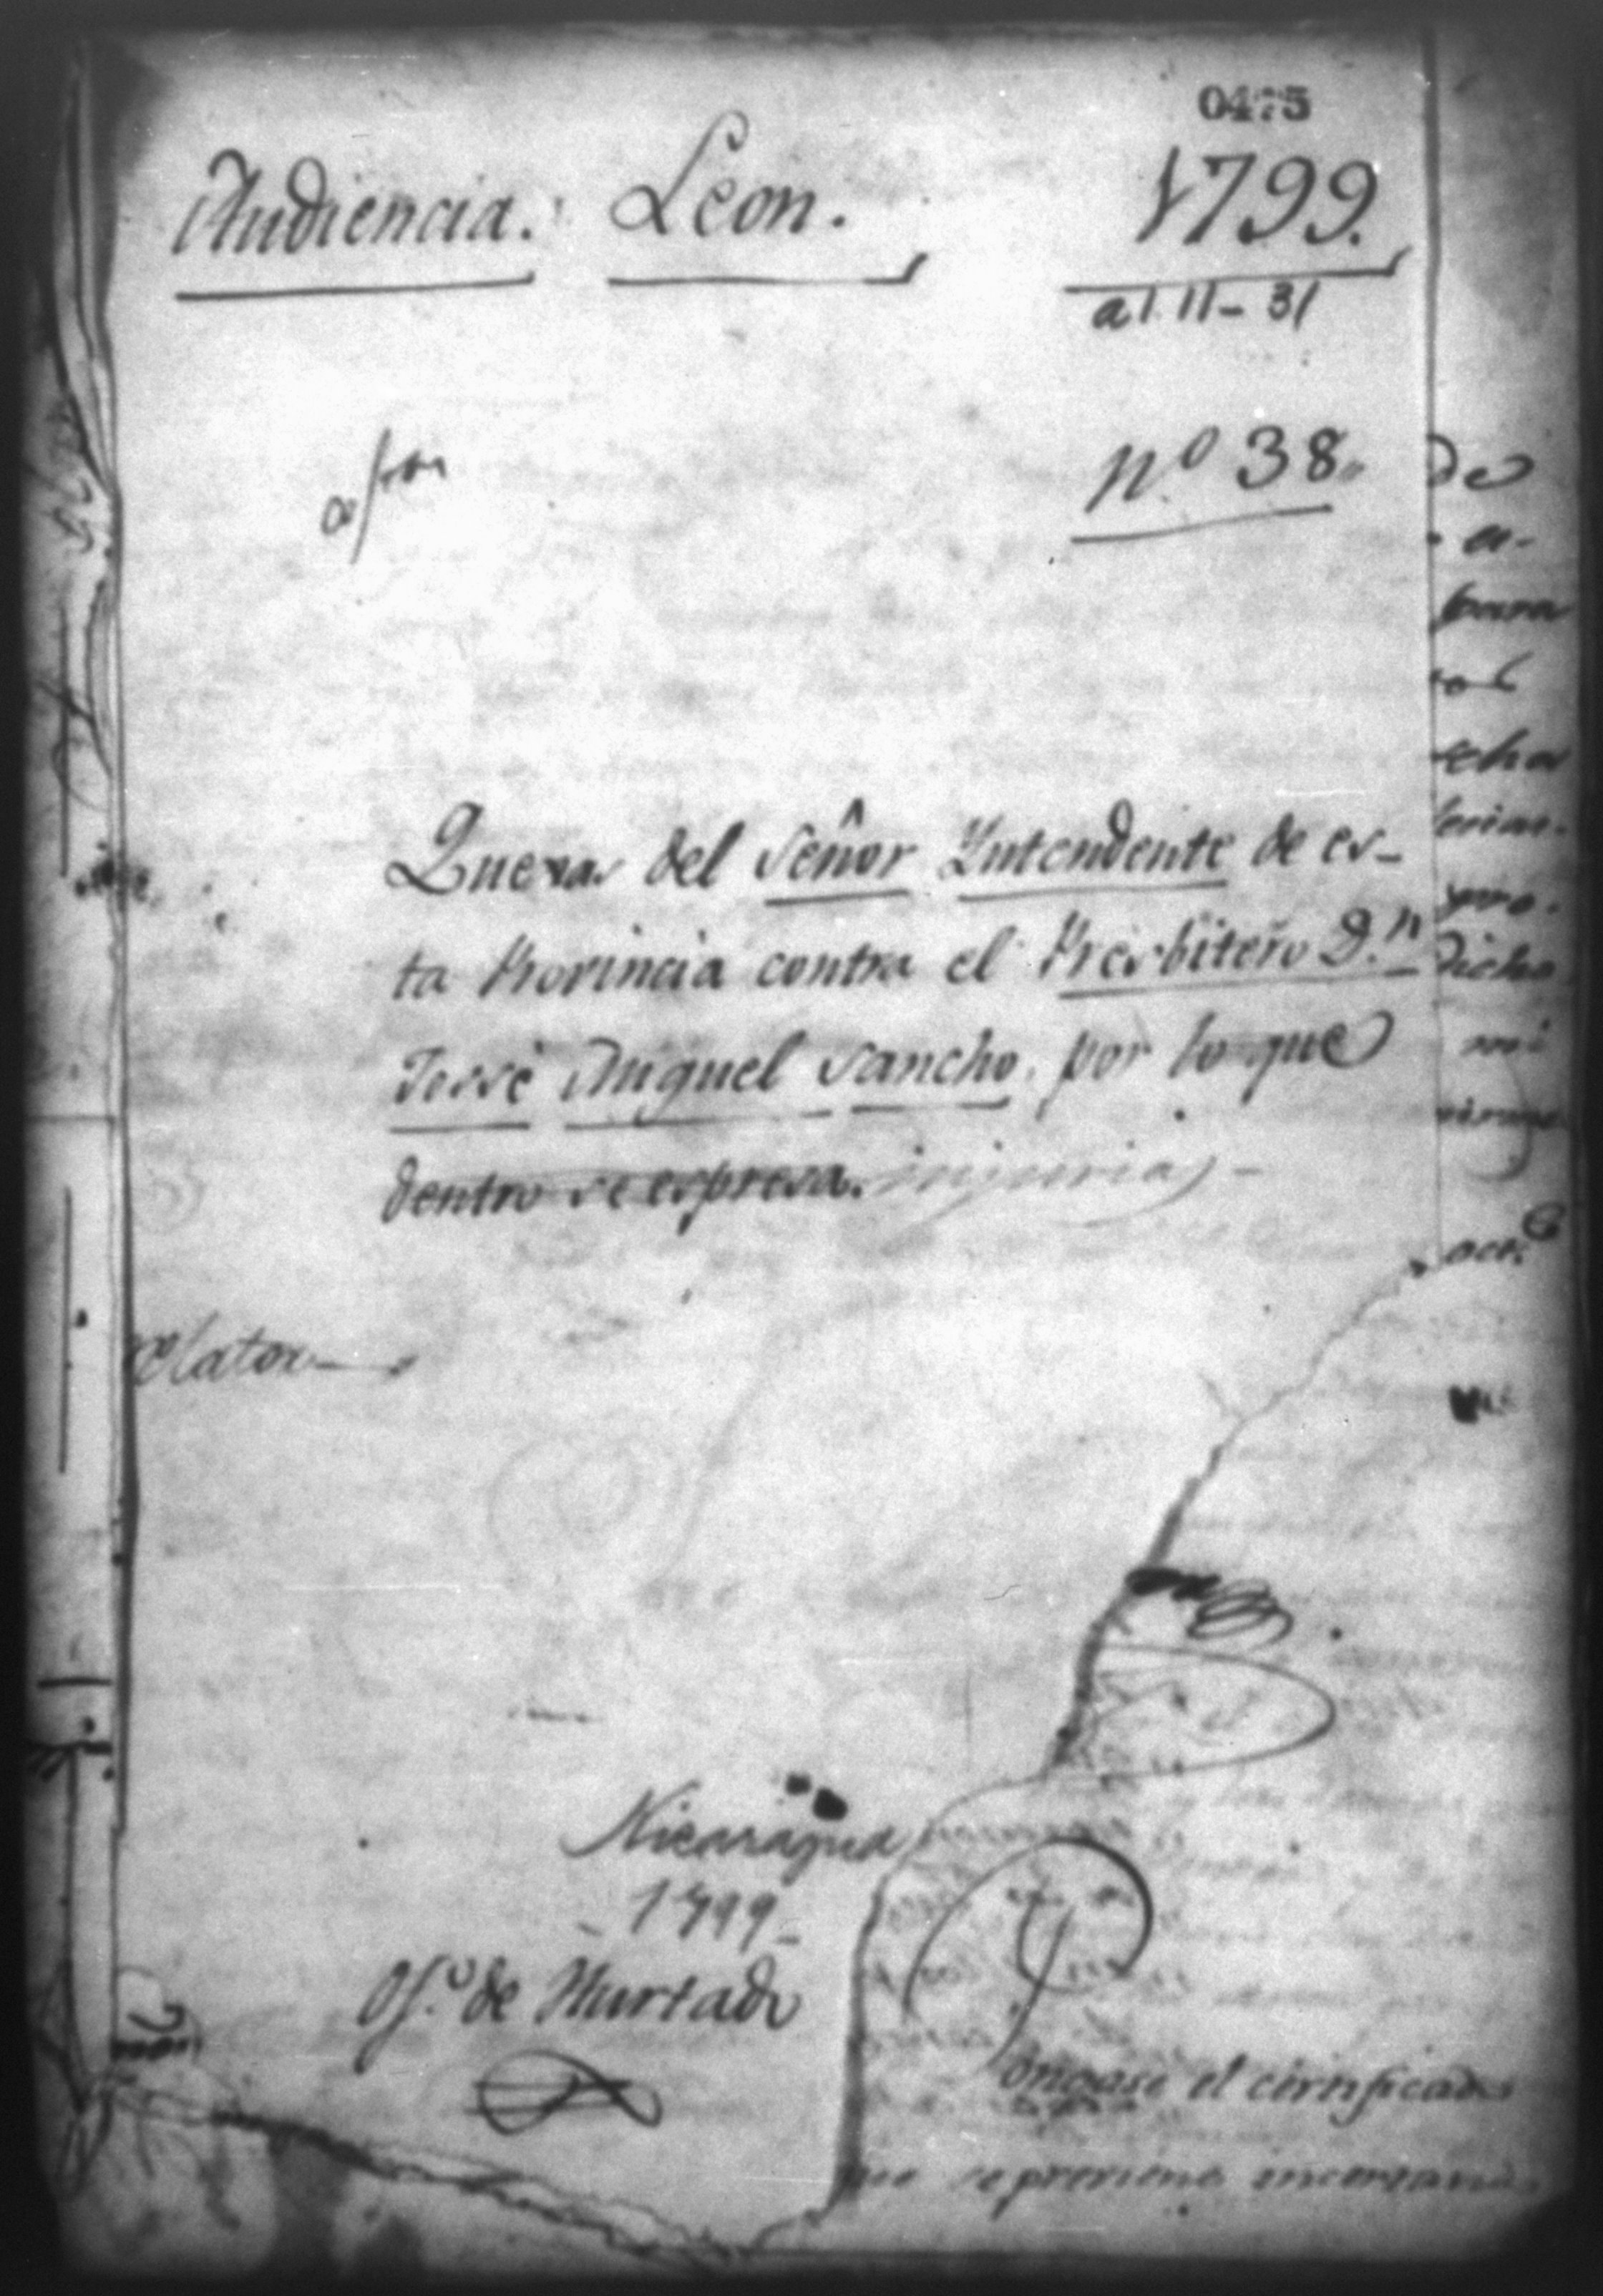 0475
Audiencia. Leon. 1799.
a1.11-31
N.º 38.
Quexas del Señor Yntendente de es-
ta Provincia contra el Presbitero D.n
José Miguel Sancho, por lo que
dentro se expresa. injurias -
elator
Nicaragua
- 1799 -
Of.º de Hurtado
de
a-
para
mi
el certificado
que se previene